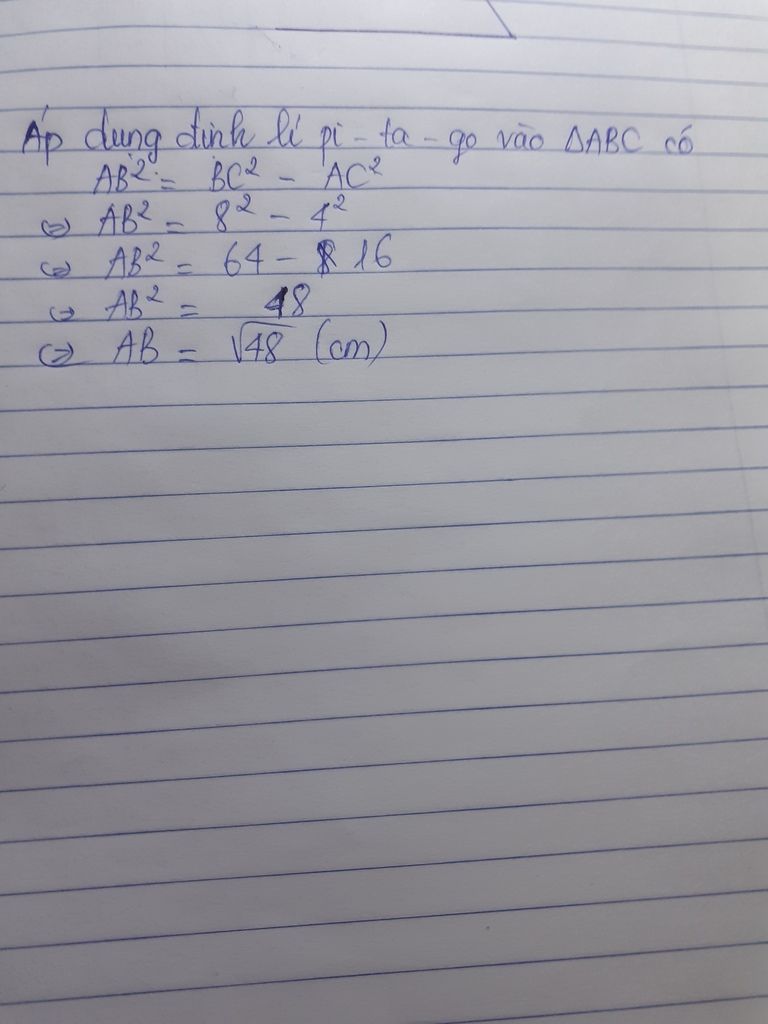 Áp dụng định lí pi-ta-go vào ΔABC có
AB² = BC² - AC²
⇔ AB² = 8² - 4²
⇔ AB² = 64 - 16
⇔ AB² = 48
⇔ AB = √48 (cm)